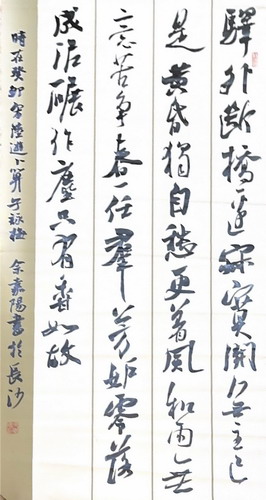 驛外斷橋邊寂寞開無主已
是黃昏獨自愁更著風和雨無
意苦爭春一任羣芳妒零落
成泥碾作塵只有香如故
時在癸卯寫陸游卜算子詠梅 余嘉陽書於長沙